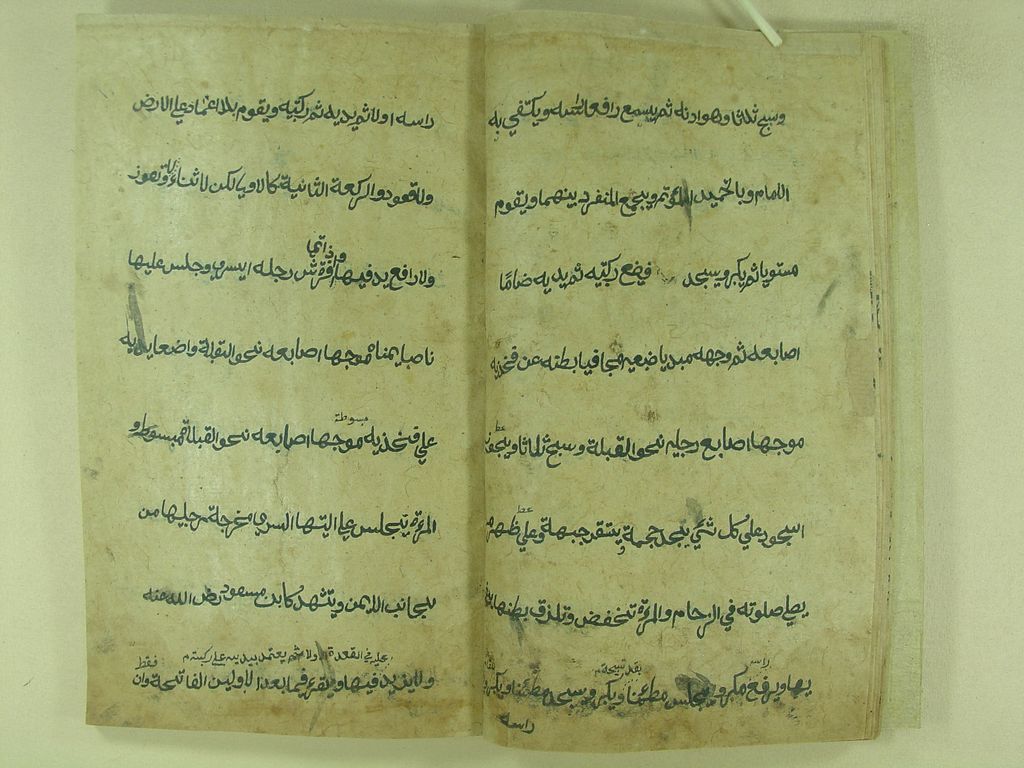 وسبح ثلثا وهو ادنه ثم يسمع رافعا راسه ويكتفي به
الامام وبالتحميد المؤتم ويجمع المنفرد بينهما ويقوم
مستويا ثم يكبر ويسجد فيضع ركبتيه ثم يديه ضامًا
اصابعه ثم وجهه مبديا ضبعيه مجافيا بطنه عن فخذيه
موجها اصابع رجليه نحو القبلة وسبح ثلثا ثا ويجوز
السجود علي كل شئ يجد حجمه ويستقر جبهة وعلي ظهر من
يصلي صلوته في الزحام والمرءة تنخفض وتلزق بطنها
راسه
بها ويرفع مكبرا ويجلس مطمئنا ويكبر ويسجد مطمئنا ويكبر
بقدر تسبيحة
راسه
راسه اولا ثم يديه ثم ركبتيه ويقوم بلا اعتماد علي الارض
ولا قعود والركعة الثانية كالاولي لكن لا ثناء ولا تعوذ
ولا رافع يد فيها واذا اتمها افترش رجله اليسري وجلس عليها
ناصبا يمناه موجها اصابعه نحو القبلة واضعا يديه
علي فخذيه موجها اصابعه نحو القبلة مبسوطة و
مبسوطة
المرءة تجلس علي اليتها اليسري مخرجة رجليها من
الجانب الايمن ويتشهد كابن مسعود رض الله عنه
في القعدة الاولا ثم يعتمد بيديه علي ركبته
ولا يزيد فيها ويقرء فيما بعد الاوليين الفاتحة وان
فقط